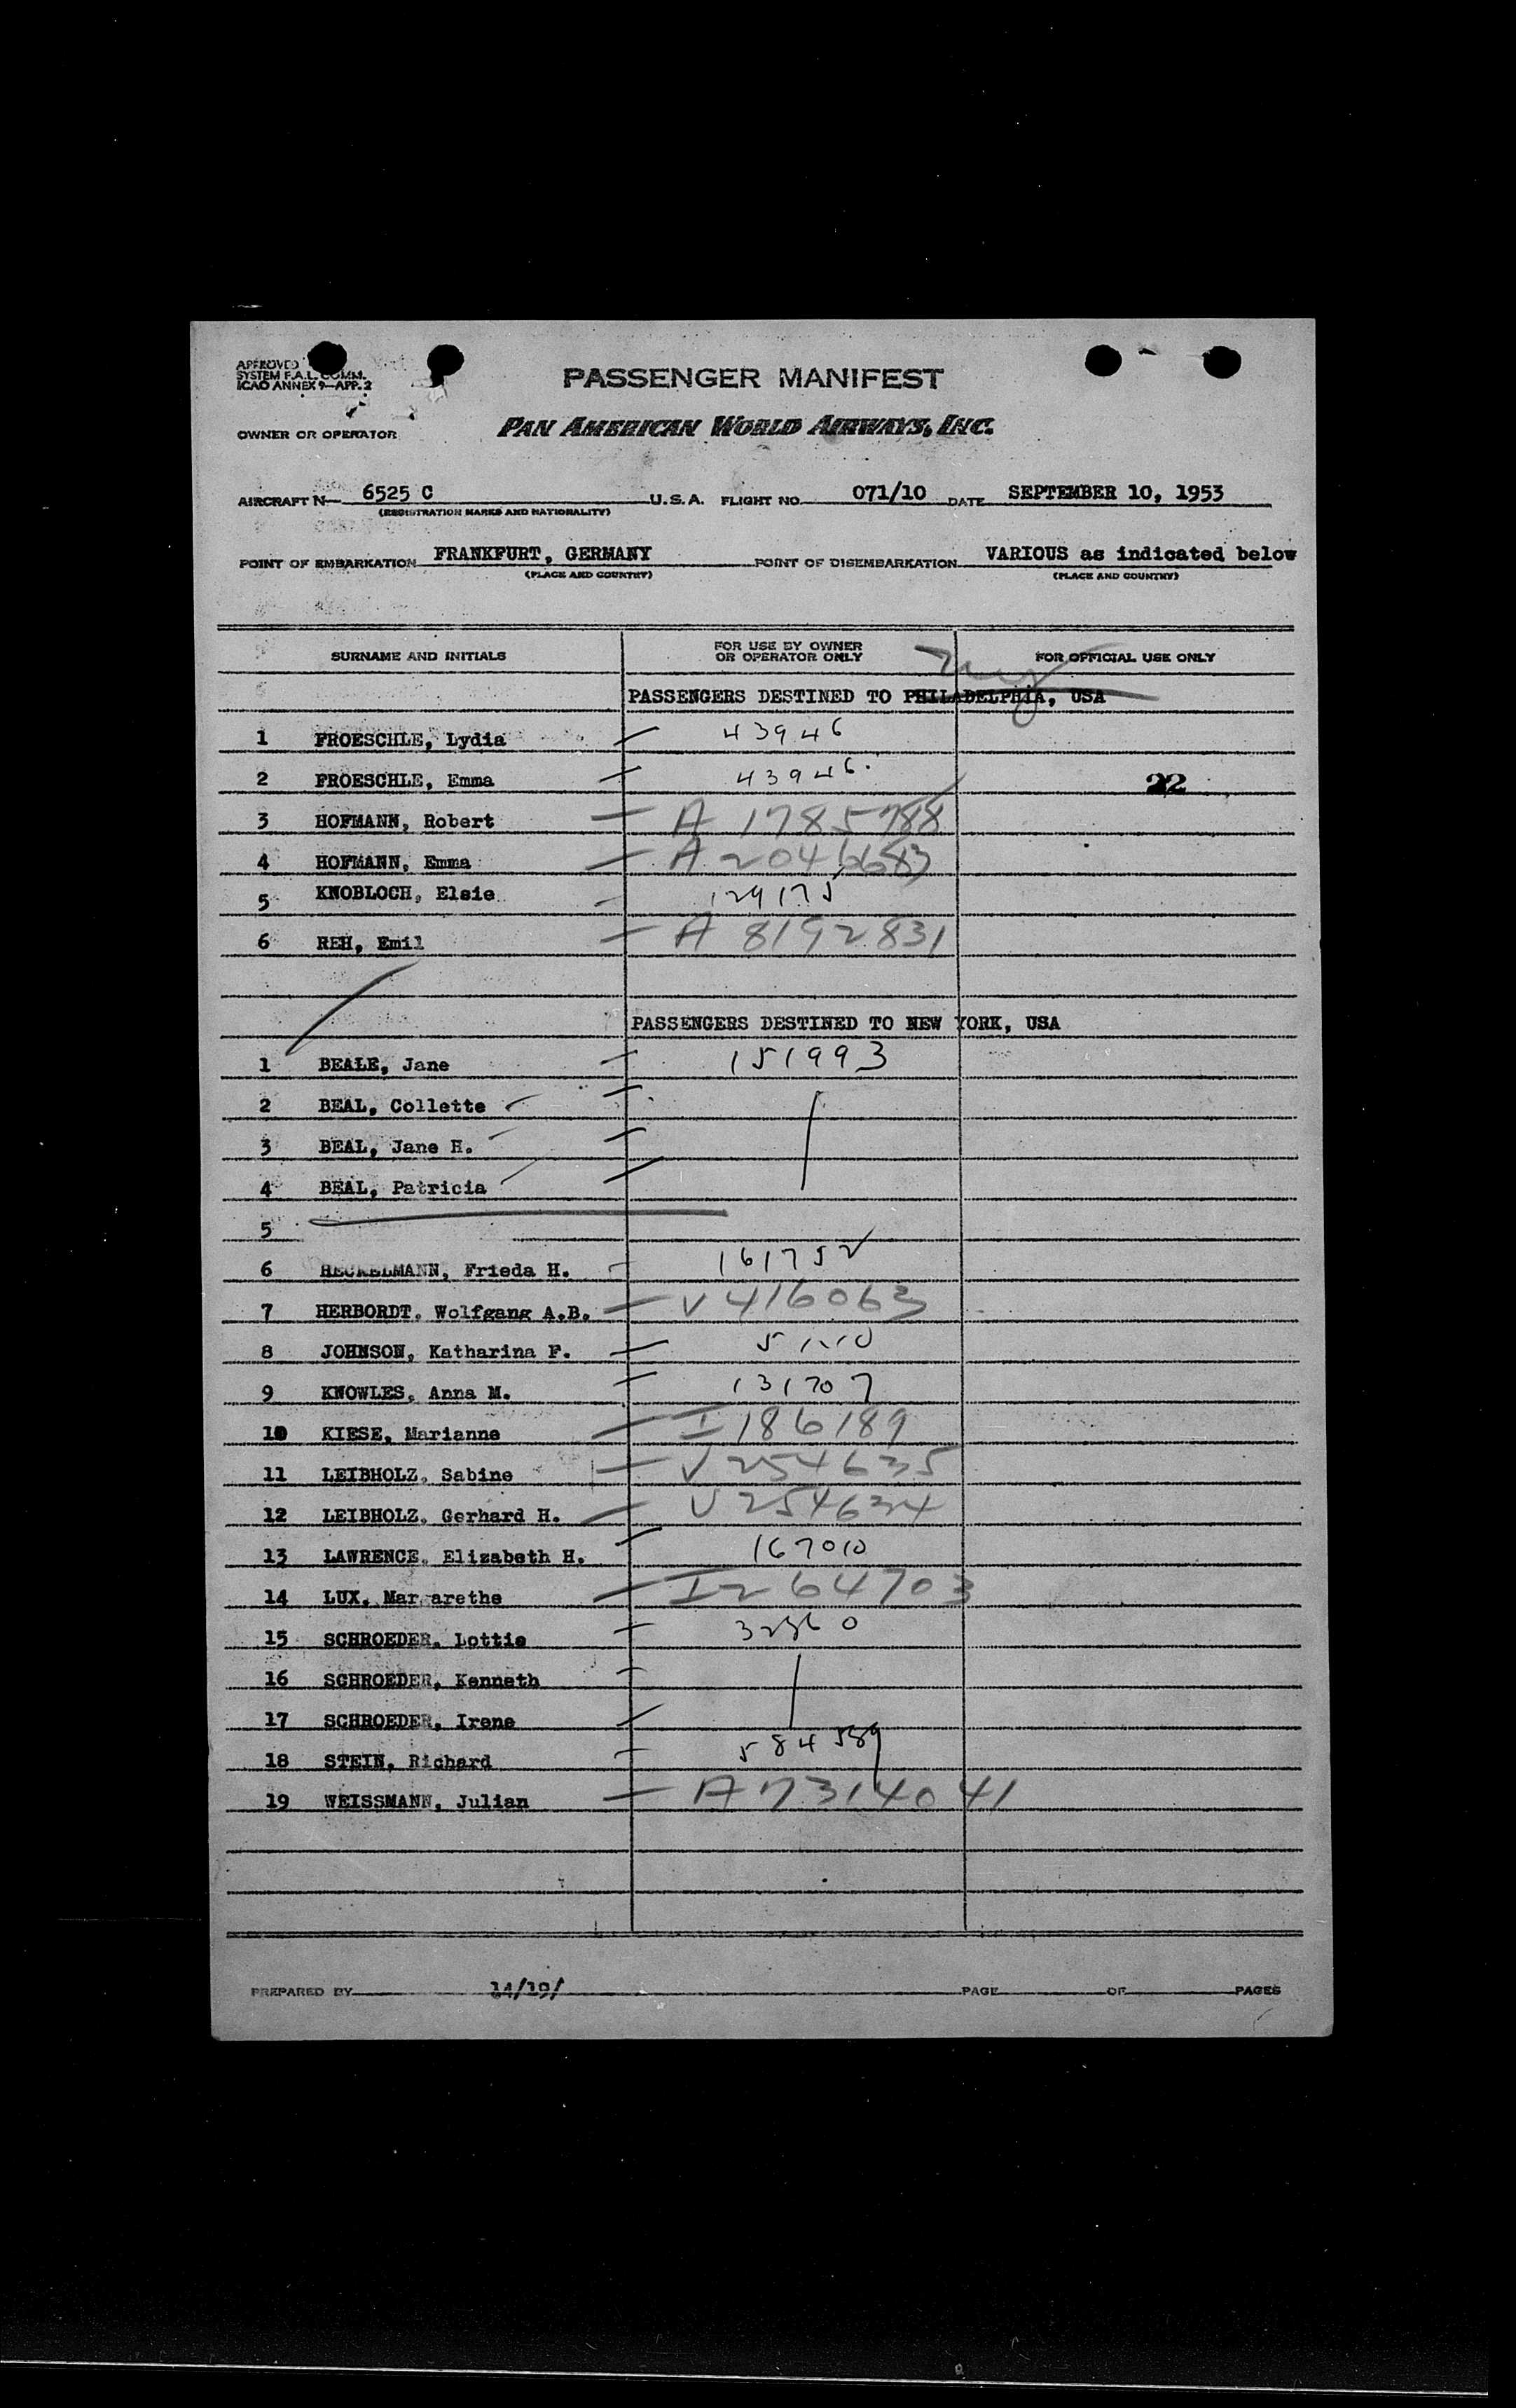 APPROVED
SYSTEM F.A.L. COMM.
ICAO ANNEX 9—APP. 2
PASSENGER MANIFEST
OWNER OR OPERATOR PAN AMERICAN WORLD AIRWAYS, INC.
AIRCRAFT N— 6525 C U.S.A. FLIGHT NO. 071/10 DATE SEPTEMBER 10, 1953
(REGISTRATION MARKS AND NATIONALITY)
POINT OF EMBARKATION FRANKFURT, GERMANY POINT OF DISEMBARKATION VARIOUS as indicated below
(PLACE AND COUNTRY) (PLACE AND COUNTRY)
SURNAME AND INITIALS FOR USE BY OWNER OR OPERATOR ONLY FOR OFFICIAL USE ONLY
PASSENGERS DESTINED TO PHILADELPHIA, USA
1 FROESCHLE, Lydia 43946
2 FROESCHLE, Emma 43946 22
3 HOFMANN, Robert A 1785788
4 HOFMANN, Emma A 2046683
5 KNOBLOCH, Elsie 129175
6 REH, Emil A 8192831
PASSENGERS DESTINED TO NEW YORK, USA
1 BEALE, Jane 151993
2 BEAL, Collette
3 BEAL, Jane H.
4 BEAL, Patricia
5
6 HECKELMANN, Frieda H. 161752
7 HERBORDT, Wolfgang A.B. V 416063
8 JOHNSON, Katharina F.
9 KNOWLES, Anna M. 131707
10 KIESE, Marianne I 186189
11 LEIBHOLZ, Sabine V 254635
12 LEIBHOLZ, Gerhard H. V 254634
13 LAWRENCE, Elizabeth H. 167010
14 LUX, Mar arethe I 264703
15 SCHROEDER, Lottie
16 SCHROEDER, Kenneth
17 SCHROEDER, Irene
18 STEIN, Richard 584589
19 WEISSMANN, Julian A 7314041
PREPARED BY 14/19/ PAGE OF PAGES